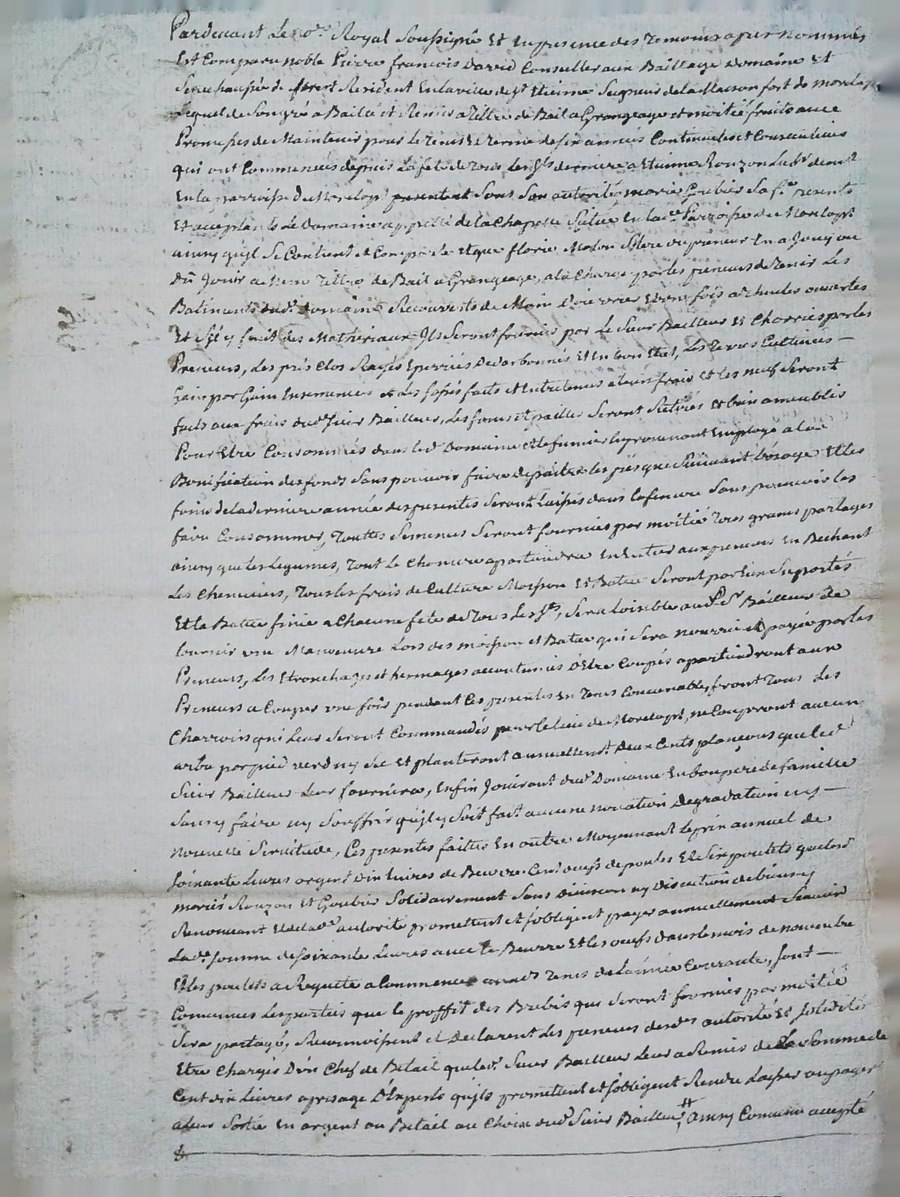 Pardevant Le no.re Royal Soussigné Et En presence des Temoins apres nommés
Est Comparu noble Pierre françois David Conseiller aux Bailliage Domaine Et
Senechaussée de forest Resident En la ville de s.t Etienne Seigneur de la Maison fort de
Lequel de Son gré a Bailé et Remis a Tittre de Bail a Grangeage et moitié fruits avec
Promesse de Maintenir pour le Tems Et Terme de six années Continuelles et Consecutives
qui ont Commencés depuis La fete de Tous Les S.ts derniere a Etienne Rouzon Lab.r dem.t
En la parroisse de presentent Sous Son autorité marié Goubié Sa f.e presents
Et acceptants Le Domaine appellé de la Chapelle Scitué En la d.e Parroisse de
ainsy qu'jl Se Contient et Comporte Et que florie Molon
Dû Jouir a meme Tittre de Bail a Grangeage, a la Charge par les preneurs de Tenir Les
Batiments dud.t Domaine Recouverts de Main D'oeuvre Et une fois a Thuiles ouvertes
Et S'il y faut des Mathériaux Jls Seront fournis par Le Sieur Bailleur Et Charriés par les
Preneurs, Les prés Clos Rasés Et En bon Etat, Les Terres Cultivées
Gain par Gain Ensemencés et Les fossés faits et Entretenus a leurs frais et les neufs Seront
faits aux frais dud.t Sieur Bailleur, Les foins et pailles Seront Retirés Et bien ameublis
Pour Etre Consommés dans led.t Domaine Et le fumier En provenant Employé a la
Bonification des fonds Sans pouvoir faire depaitre les prés que Suivant l'usage Et les
foins de la derniere année des presentes Seront Laissés dans la feniere Sans pouvoir les
faire Consommer, Touttes Semences Seront fournies par moitié Tous grains partagés
ainsy que les Legumes, Tout Le Chanvre apartiendra En Entier aux preneurs En Bechant
Les Chenevieres, Tous les frais de Culture Moisson Et Batue Seront par Eux Suportés
Et la Batue finie a Chacune fete de Tous Les S.ts, Sera Loisible aud.t S.r Bailleur de
fournir un Manoeuvre Lors des moisson et Batue qui Sera nourri et payé par les
Preneurs, Les Etronchages et hermages accoutumés D'etre Coupés apartiendront aux
Preneurs a Couper une fois pendant Ces presentes En Tems Convenable, front Tous des
Charrois qui Leur Seront Commandés pour le lieu de ne Couperont aucun
arbre par pied verd ny Sec Et planteront annuellem.t Deux Cents plançons que led.t
Sieur Bailleur Leur fournira, Enfin Jouiront dud.t Domaine En bon pere de famille
Sans y faire ny Souffrir qu'jl y Soit fait aucune novation Degradation ny
nouvelle Servitude, Ces presentes faites En outre Moyennant le prix annuel de
Soixante Livres argent Dix Livres de Beurre Cent oeufs de poules Et Six poulets que les d.ts
mariés Rouzon Et Goubié Solidairement Sans Division ny Discution de biens y
Renonçant Et de la d.e autorité promettent Et s'obligent payer annuellement Scavoir
La d.e Somme de Soixante Livres avec Le Beurre Et les oeufs dans le mois de novembre
Et les poulets a Requete a Commencer aux d.ts Tems de l'année Courante, Sont
Convenues Les parties que le proffit des Brebis qui Seront fournies par moitié
Sera partagé, Reconnoissent et Declarent Les preneurs des d.es autorité Et Solidité
Etre Chargés D'un Chef de Betail que led.t Sieur Bailleur Leur a Remis de La Somme de
Cent dix Livres a prisage D'Experts qu'jls promettent et s'obligent Rendre Laisser ou payer
a leur Sortie En argent ou Betail au Choix dud.t Sieur Bailleur, # ainsy Convenu accepté
&